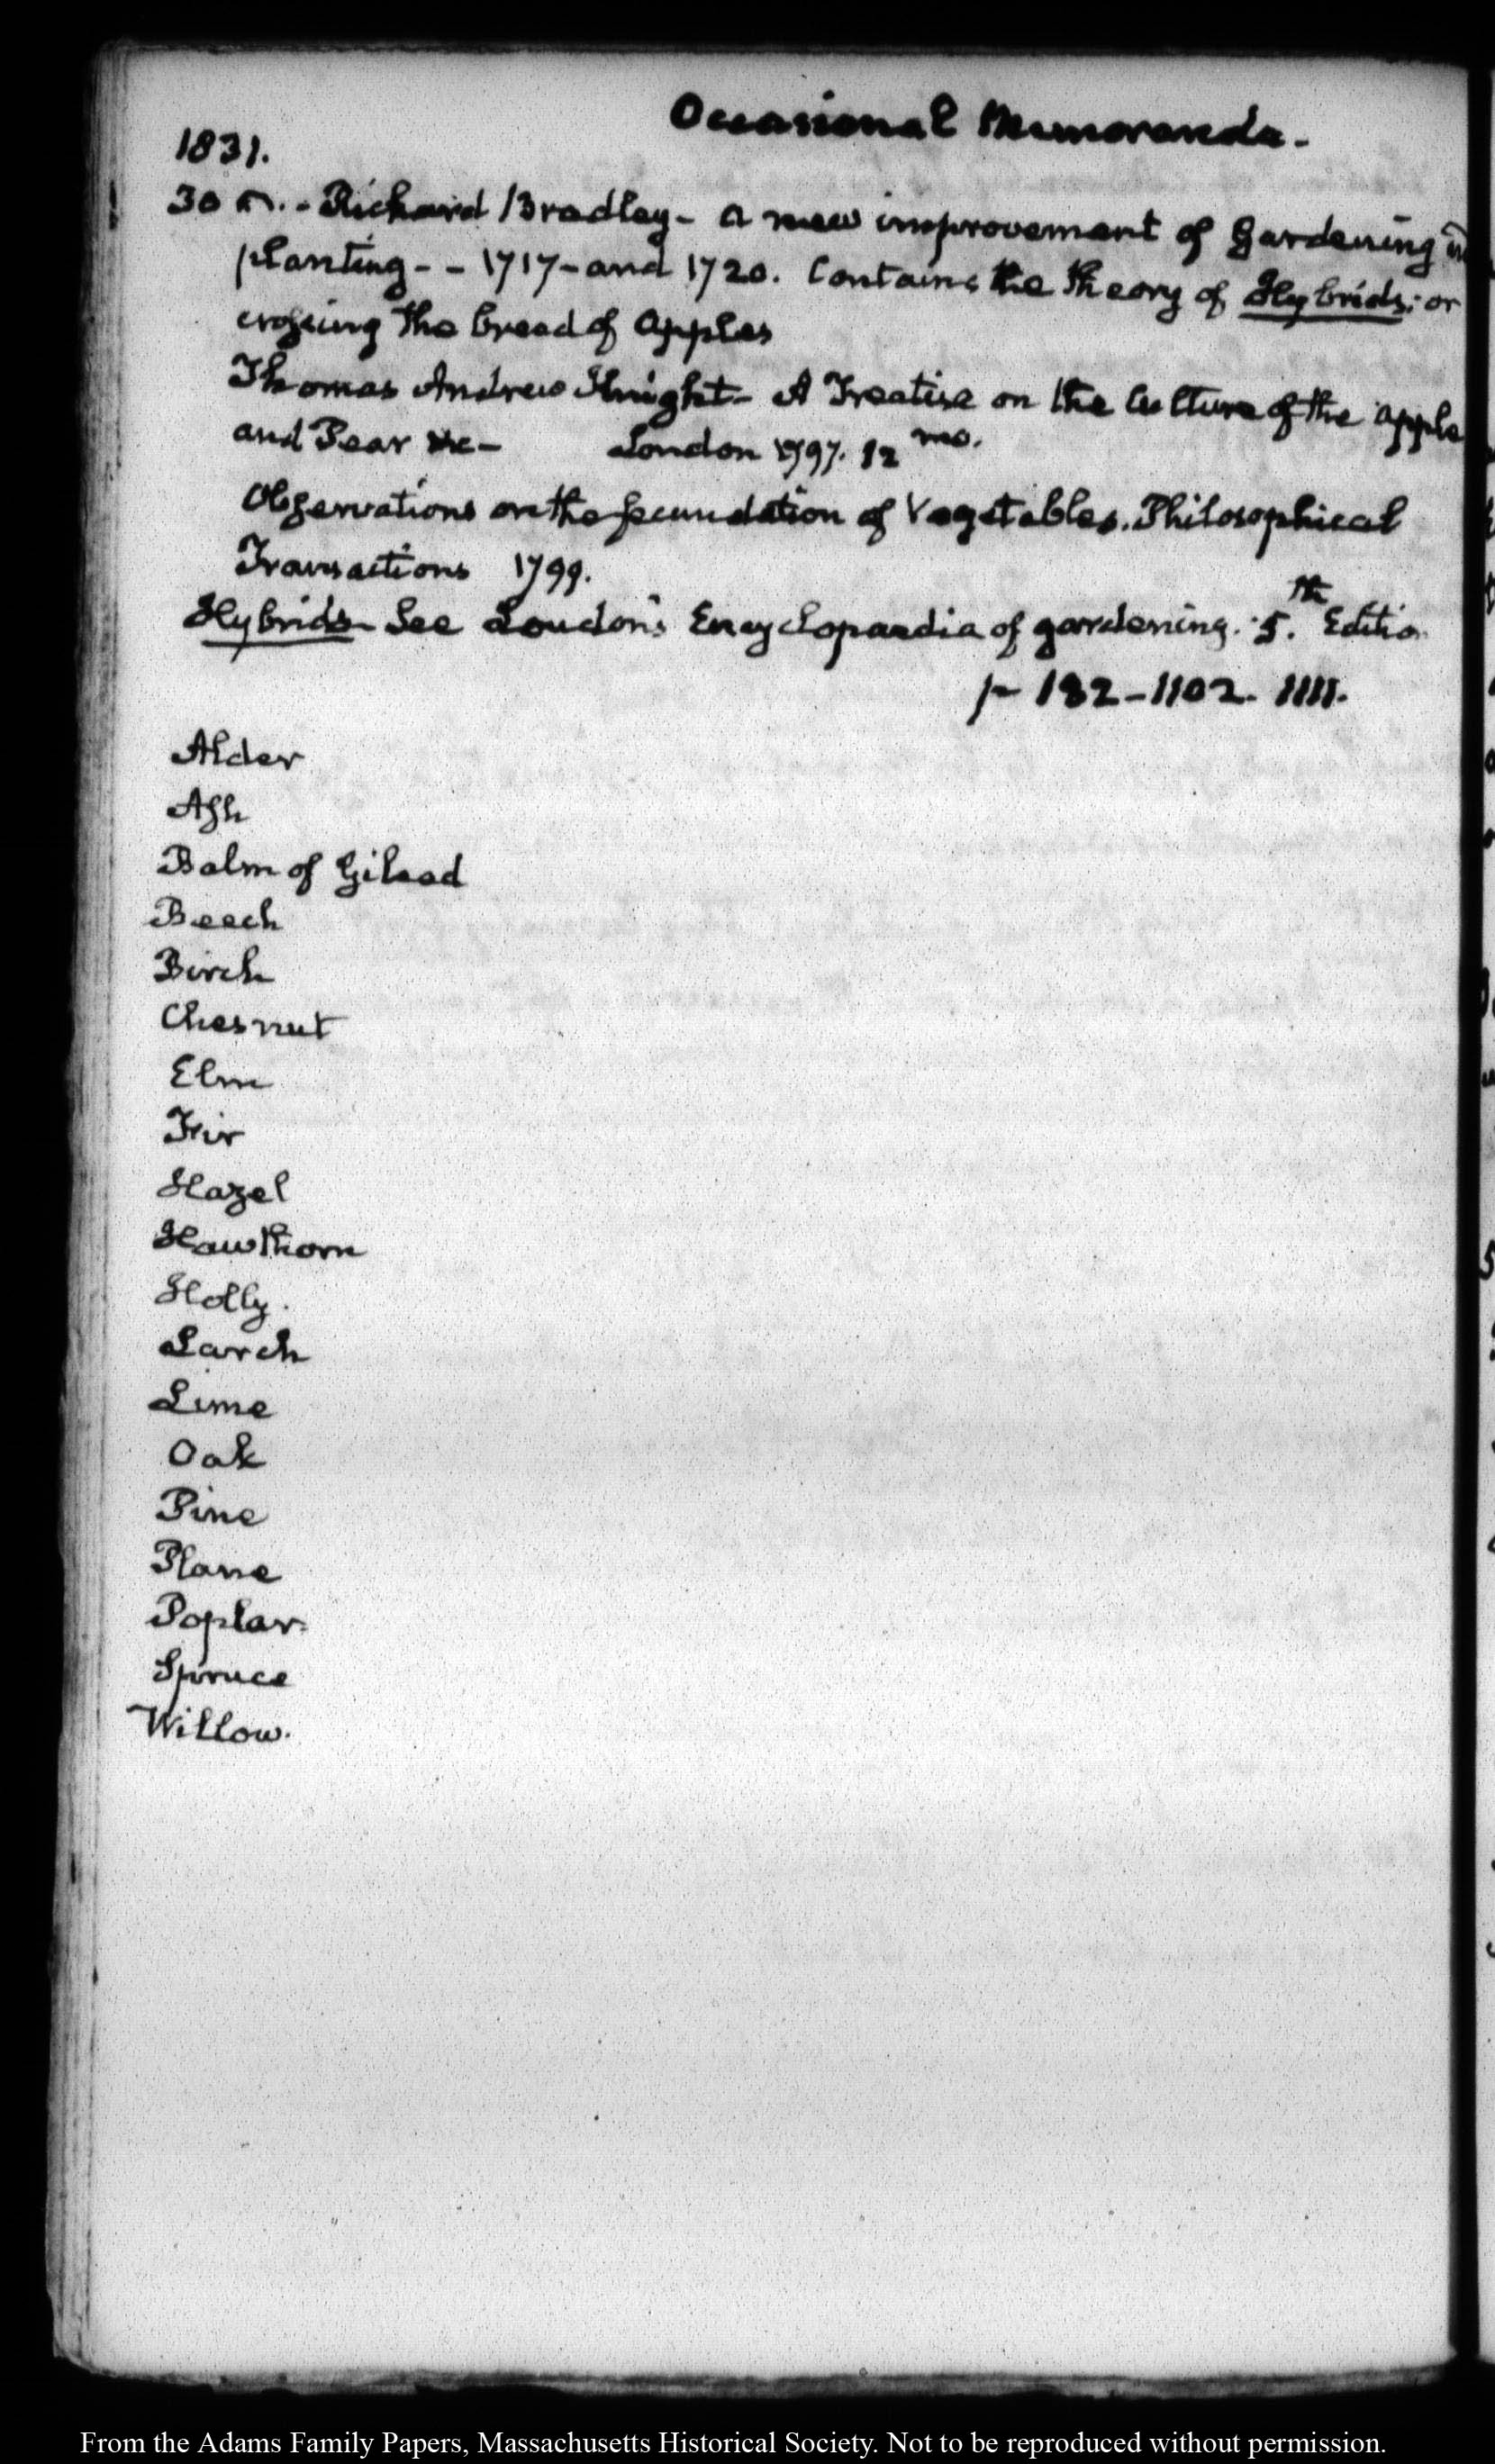 Occasional Memoranda.
1831.
30 - Richard Bradley - a new improvement of gardening
planting - - 1717 - and 1720. Contains the theory of Hybrids; or
crossing the breed of apples
Thomas Andrew Knight - A Treatise on the Culture of the apple
and Pear &c - London 1797. 12 mo.
Observations on the fecundation of Vegetables. Philosophical
Transactions 1799.
Hybrids - See Loudon's Encyclopaedia of gardening. 5.th Edition
p - 182 - 1102. 1111.
Alder
Ash
Balm of Gilead
Beech
Birch
Chesnut
Elm
Fir
Hazel
Hawthorn
Holly.
Larch
Lime
Oak
Pine
Plane
Poplar.
Spruce
Willow.
From the Adams Family Papers, Massachusetts Historical Society. Not to be reproduced without permission.